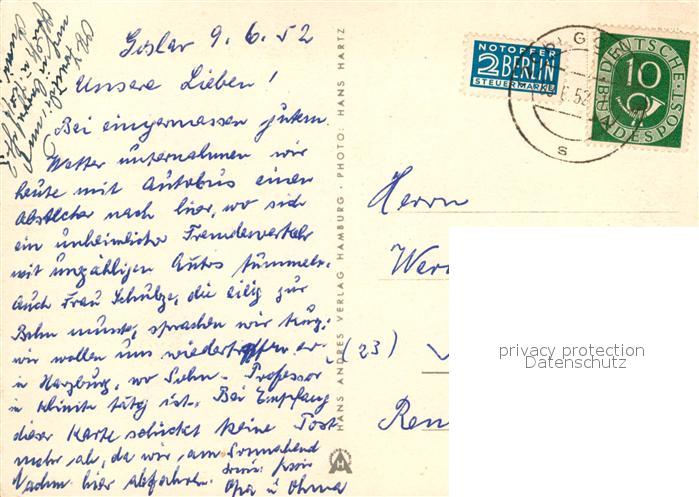 Goslar 9.6.52
Unsere Lieben!
Bei einigermassen gutem
Wetter unternahmen wir
heute mit Autobus einen
Abstecher nach hier, wo sich
ein unheimlicher Fremdenverkehr
mit unzähligen Autos tummelt.
Auch Frau Schulze, die eilig zur
Bahn musste, sprachen wir kurz;
wir wollen uns wiedertreffen
in Harzburg, wo Sohn Professor
in Klinik tätig ist. Bei Empfang
dieser Karte schickt keine Post
mehr ab, da wir am Sonnabend
Nachm. hier abfahren.
Opa u Ohma
HANS ANDRES VERLAG HAMBURG · PHOTO: HANS HARTZ
HA
NOTOPFER
2 BERLIN
STEUERMARKE
52
s
DEUTSCHE
10
BUNDESPOST
Herrn
Wer
(23)
Ren
privacy protection
Datenschutz